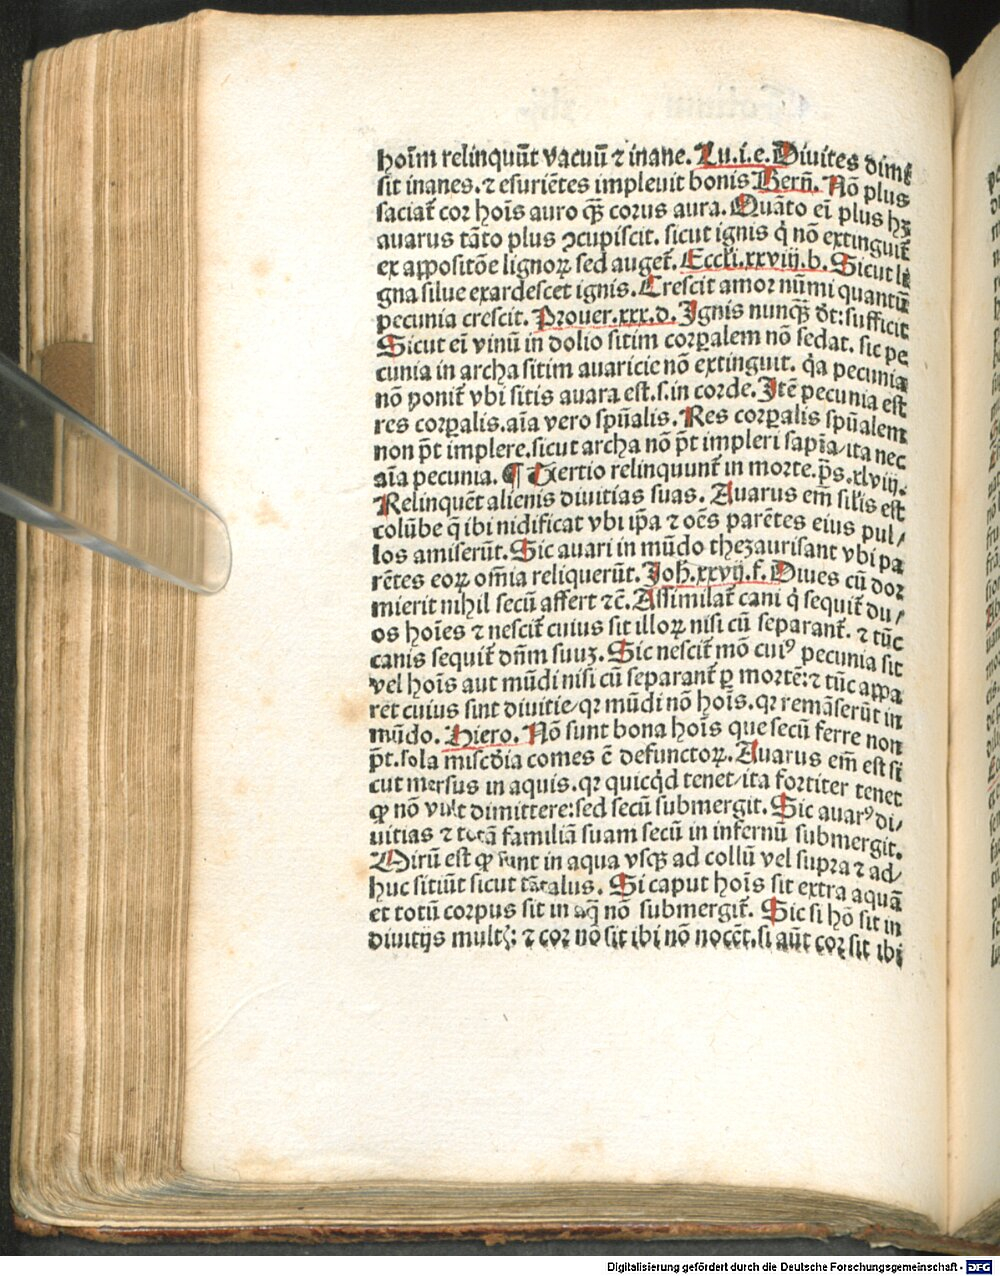 hoīm relinquūt vacuū ⁊ inane. Lu.i.e. Diuites dimi
sit inanes. ⁊ esuriētes impleuit bonis Bern̄. Nō plus
saciat᷑ cor hoīs auro qꝫ corus aura. Quāto ei̅ plus hꝫ
auarus tāto plus ꝯcupiscit. sicut ignis q̇ nō extinguit᷑
ex appositōe lignoꝝ sed auget᷑. Eccli.xxviij.b. Sicut li
gna silue exardescet ignis. Crescit amor nūmi quantū
pecunia crescit. Prouer.xxx.d. Ignis nunqꝫ dt̄: sufficit
Sicut ei̅ vinū in dolio sitim corꝑalem nō sedat. sic pe
cunia in archa sitim auaricie nō extinguit. q̇a pecunia
nō ponit᷑ vbi sitis auara est.s.in corde. Itē pecunia est
res corꝑalis. aīa vero spūalis. Res corꝑalis spūalem
non pt̄ implere. sicut archa nō pt̄ impleri sapīa/ita nec
aīa pecunia. ¶ Tertio relinquunt᷑ in morte. ps̄.xlviij.
Relinquēt alienis diuitias suas. Auarus em̄ silīs est
colūbe q̄ ibi nidificat vbi ip̄a ⁊ oēs parētes eius pul/
los amiserūt. Sic auari in mūdo thezaurisant vbi pa
rētes eoꝝ om̄ia reliquerūt. Joh̄.xxvij.f. Diues cū dor
mierit nihil secū affert ⁊c̄. Assimilat᷑ cani q̇ sequit᷑ du/
os hoīes ⁊ nescit᷑ cuius sit illoꝝ nisi cū separant᷑. ⁊ tūc
canis sequit᷑ dn̄m suuꝫ. Sic nescit᷑ mō cuiꝰ pecunia sit
vel hoīs aut mūdi nisi cū separant᷑ ꝑ mortē: ⁊ tūc appa
ret cuius sint diuitie/qꝛ mūdi nō hoīs. qꝛ remāserūt in
mūdo. Hiero. Nō sunt bona hoīs que secū ferre non
pt̄. sola miscd̄ia comes ē defunctoꝝ. Auarus em̄ est si
cut mersus in aquis. qꝛ quicq̇d tenet/ita fortiter tenet
ꝙ nō vult dimittere: sed secū submergit. Sic auarꝰ di/
uitias ⁊ totā familiā suam secū in infernū submergit.
Mirū est ꝙ sunt in aqua vsqꝫ ad collū vel supra ⁊ ad/
huc sitiūt sicut tātalus. Si caput hoīs sit extra aquā
et totū corpus sit in aq̄ nō submergit᷑. Sic si hō sit in
diuitijs multꝭ: ⁊ cor nō sit ibi nō nocēt. si aūt cor sit ibi
Digitalisierung gefördert durch die Deutsche Forschungsgemeinschaft - DFG